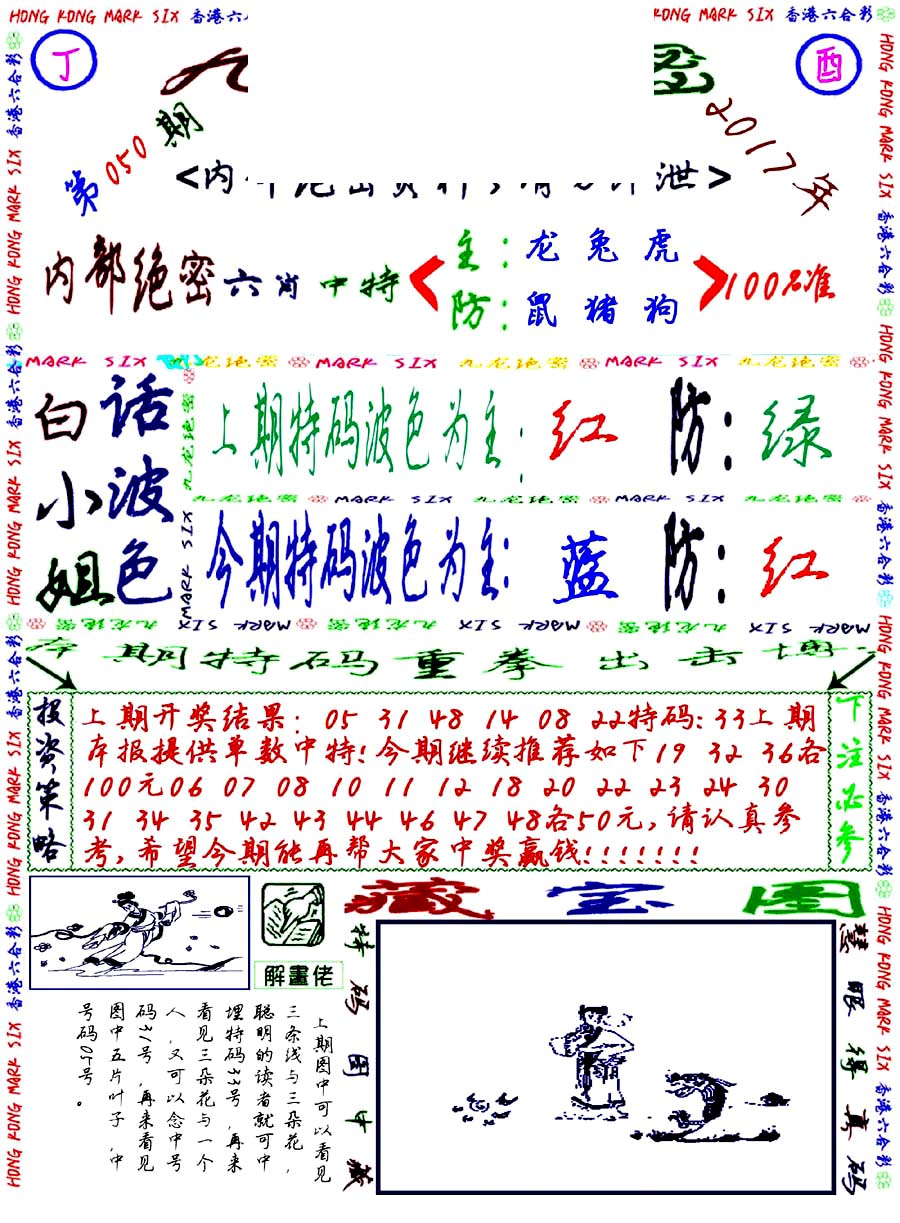 HONG KONG MARK SIX 香港六合彩
KONG MARK SIX 香港六合彩
丁
酉
第050期
2017年
<内
泄>
内部绝密六肖中特
主：龙 兔 虎
防：鼠 猪 狗
100%准
MARK SIX 九龙绝密 MARK SIX 九龙绝密 MARK SIX 九龙绝密
白话
小波
姐色
上期特码波色为主：红 防：绿
九龙绝密 MARK SIX 九龙绝密 MARK SIX 九龙绝密
今期特码波色为主：蓝 防：红
九龙绝密 MARK SIX 九龙绝密 MARK SIX 九龙绝密 MARK SIX
本期特码重拳出击博
投资策略
上期开奖结果：05 31 48 14 08 22特码:33上期
本报提供单数中特!今期继续推荐如下19 32 36各
100元06 07 08 10 11 12 18 20 22 23 24 30
31 34 35 42 43 44 46 47 48各50元,请认真参
考,希望今期能再帮大家中奖赢钱!!!!!!!
下注必参
藏宝图
解畫佬
特码图中藏
慧眼得真码
上期图中可以看见
三条线与三朵花，
聪明的读者就可中
埋特码33号，再来
看见三朵花与一个
人，又可以念中号
码31号，再来看见
图中五片叶子，中
号码05号。